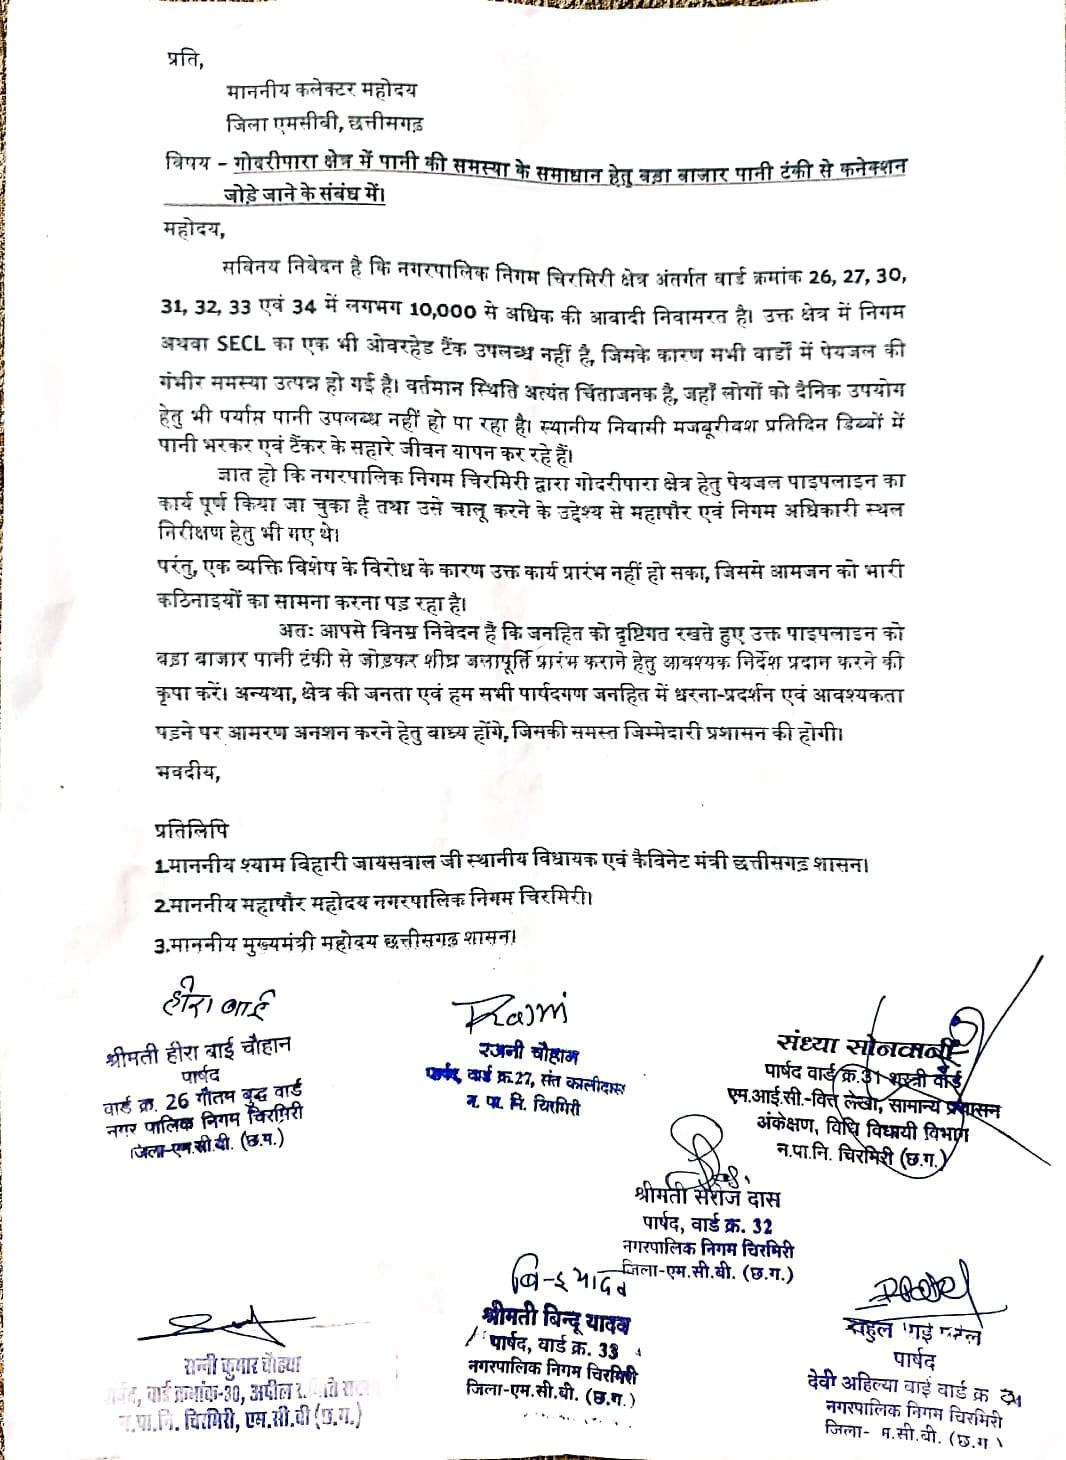 प्रति,
माननीय कलेक्टर महोदय
जिला एमसीबी, छत्तीसगढ़
विषय – गोदरीपारा क्षेत्र में पानी की समस्या के समाधान हेतु बड़ा बाजार पानी टंकी से कनेक्शन
जोड़े जाने के संबंध में।
महोदय,
सविनय निवेदन है कि नगरपालिक निगम चिरमिरी क्षेत्र अंतर्गत वार्ड क्रमांक 26, 27, 30,
31, 32, 33 एवं 34 में लगभग 10,000 से अधिक की आबादी निवासरत है। उक्त क्षेत्र में निगम
अथवा SECL का एक भी ओवरहेड टैंक उपलब्ध नहीं है, जिसके कारण सभी वार्डों में पेयजल की
गंभीर समस्या उत्पन्न हो गई है। वर्तमान स्थिति अत्यंत चिंताजनक है, जहाँ लोगों को दैनिक उपयोग
हेतु भी पर्याप्त पानी उपलब्ध नहीं हो पा रहा है। स्थानीय निवासी मजबूरीवश प्रतिदिन डिब्बों में
पानी भरकर एवं टैंकर के सहारे जीवन यापन कर रहे हैं।
ज्ञात हो कि नगरपालिक निगम चिरमिरी द्वारा गोदरीपारा क्षेत्र हेतु पेयजल पाइपलाइन का
कार्य पूर्ण किया जा चुका है तथा उसे चालू करने के उद्देश्य से महापौर एवं निगम अधिकारी स्थल
निरीक्षण हेतु भी गए थे।
परंतु, एक व्यक्ति विशेष के विरोध के कारण उक्त कार्य प्रारंभ नहीं हो सका, जिससे आमजन को भारी
कठिनाइयों का सामना करना पड़ रहा है।
अतः आपसे विनम्र निवेदन है कि जनहित को दृष्टिगत रखते हुए उक्त पाइपलाइन को
बड़ा बाजार पानी टंकी से जोड़कर शीघ्र जलापूर्ति प्रारंभ कराने हेतु आवश्यक निर्देश प्रदान करने की
कृपा करें। अन्यथा, क्षेत्र की जनता एवं हम सभी पार्षदगण जनहित में धरना-प्रदर्शन एवं आवश्यकता
पड़ने पर आमरण अनशन करने हेतु बाध्य होंगे, जिसकी समस्त जिम्मेदारी प्रशासन की होगी।
भवदीय,
प्रतिलिपि
1.माननीय श्याम बिहारी जायसवाल जी स्थानीय विधायक एवं कैबिनेट मंत्री छत्तीसगढ़ शासन।
2.माननीय महापौर महोदय नगरपालिक निगम चिरमिरी।
3.माननीय मुख्यमंत्री महोदय छत्तीसगढ़ शासन।
हीरा बाई
श्रीमती हीरा बाई चौहान
पार्षद
वार्ड क्र. 26 गौतम बुद्ध वार्ड
नगर पालिक निगम चिरमिरी
जिला-एम.सी.बी. (छ.ग.)
Rajni
रजनी चौहान
पार्षद, वार्ड क्र.27, संत कालीदास
न. पा. नि. चिरमिरी
संध्या सोनवानी
पार्षद वार्ड क्र.31 शास्त्री वार्ड
एम.आई.सी.-वित्त लेखा, सामान्य प्रशासन
अंकेक्षण, विधि विधायी विभाग
न.पा.नि. चिरमिरी (छ.ग.)
श्रीमती सरोज दास
पार्षद, वार्ड क्र. 32
नगरपालिक निगम चिरमिरी
जिला-एम.सी.बी. (छ.ग.)
यादव
श्रीमती बिन्दू यादव
पार्षद, वार्ड क्र. 33
नगरपालिक निगम चिरमिरी
जिला-एम.सी.बी. (छ.ग.)
कुमार
वार्ड क्रमांक-30,
न.पा.नि. चिरमिरी, एम.सी.बी (छ.ग.)
Patel
राहुल भाई पटेल
पार्षद
देवी अहिल्या बाई वार्ड क्र
नगरपालिक निगम चिरमिरी
जिला- एम.सी.बी. (छ.ग.)